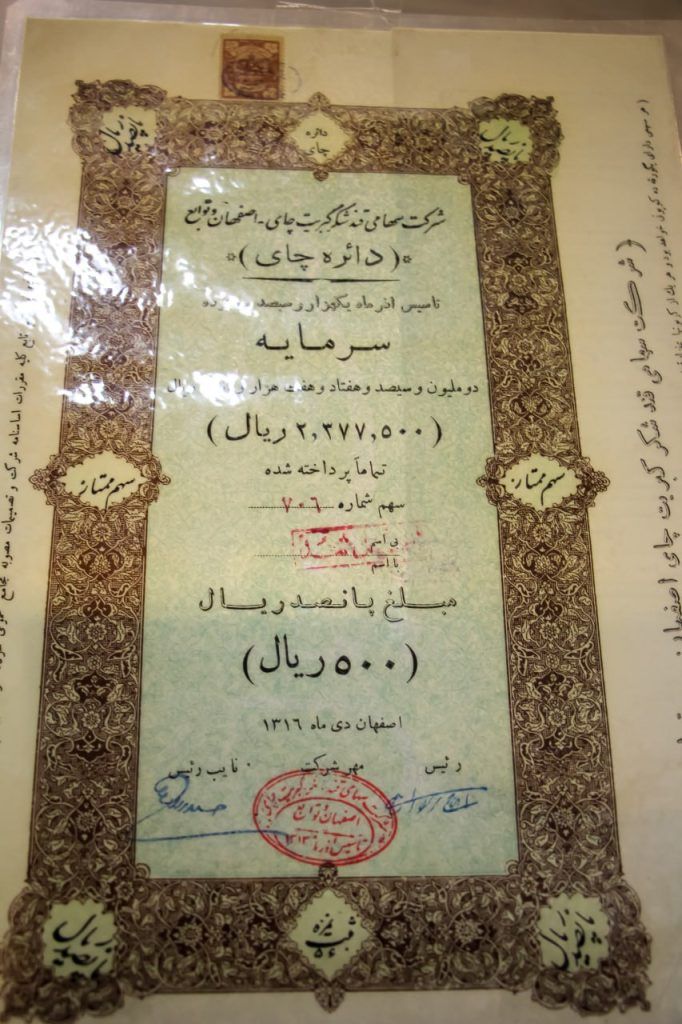 پانصد ریال
دائره
چای
پانصد ریال
شرکت سهامی قند شکر کبریت چای - اصفهان و توابع
*(دائره چای)*
تاسیس آذر ماه یکهزار و سیصد و
سرمایه
دو ملیون و سیصد و هفتاد و هفت هزار و ریال
(۲,۳۷۷,۵۰۰ ریال)
تماماً پرداخته شده
سهم شماره ۷۰۶
بی اسم
با اسم
سهم ممتاز
سهم ممتاز
مبلغ پانصد ریال
(۵۰۰ ریال)
اصفهان دی ماه ۱۳۱۶
رئیس مهر شرکت نایب رئیس
اصفهان و توابع
پانصد ریال
پانصد ریال
(شرکت سهامی قند شکر کبریت چای اصفهان
تابع کلیه مقررات اساسنامه شرکت و تصمیمات مصوبه مجامع عمومی